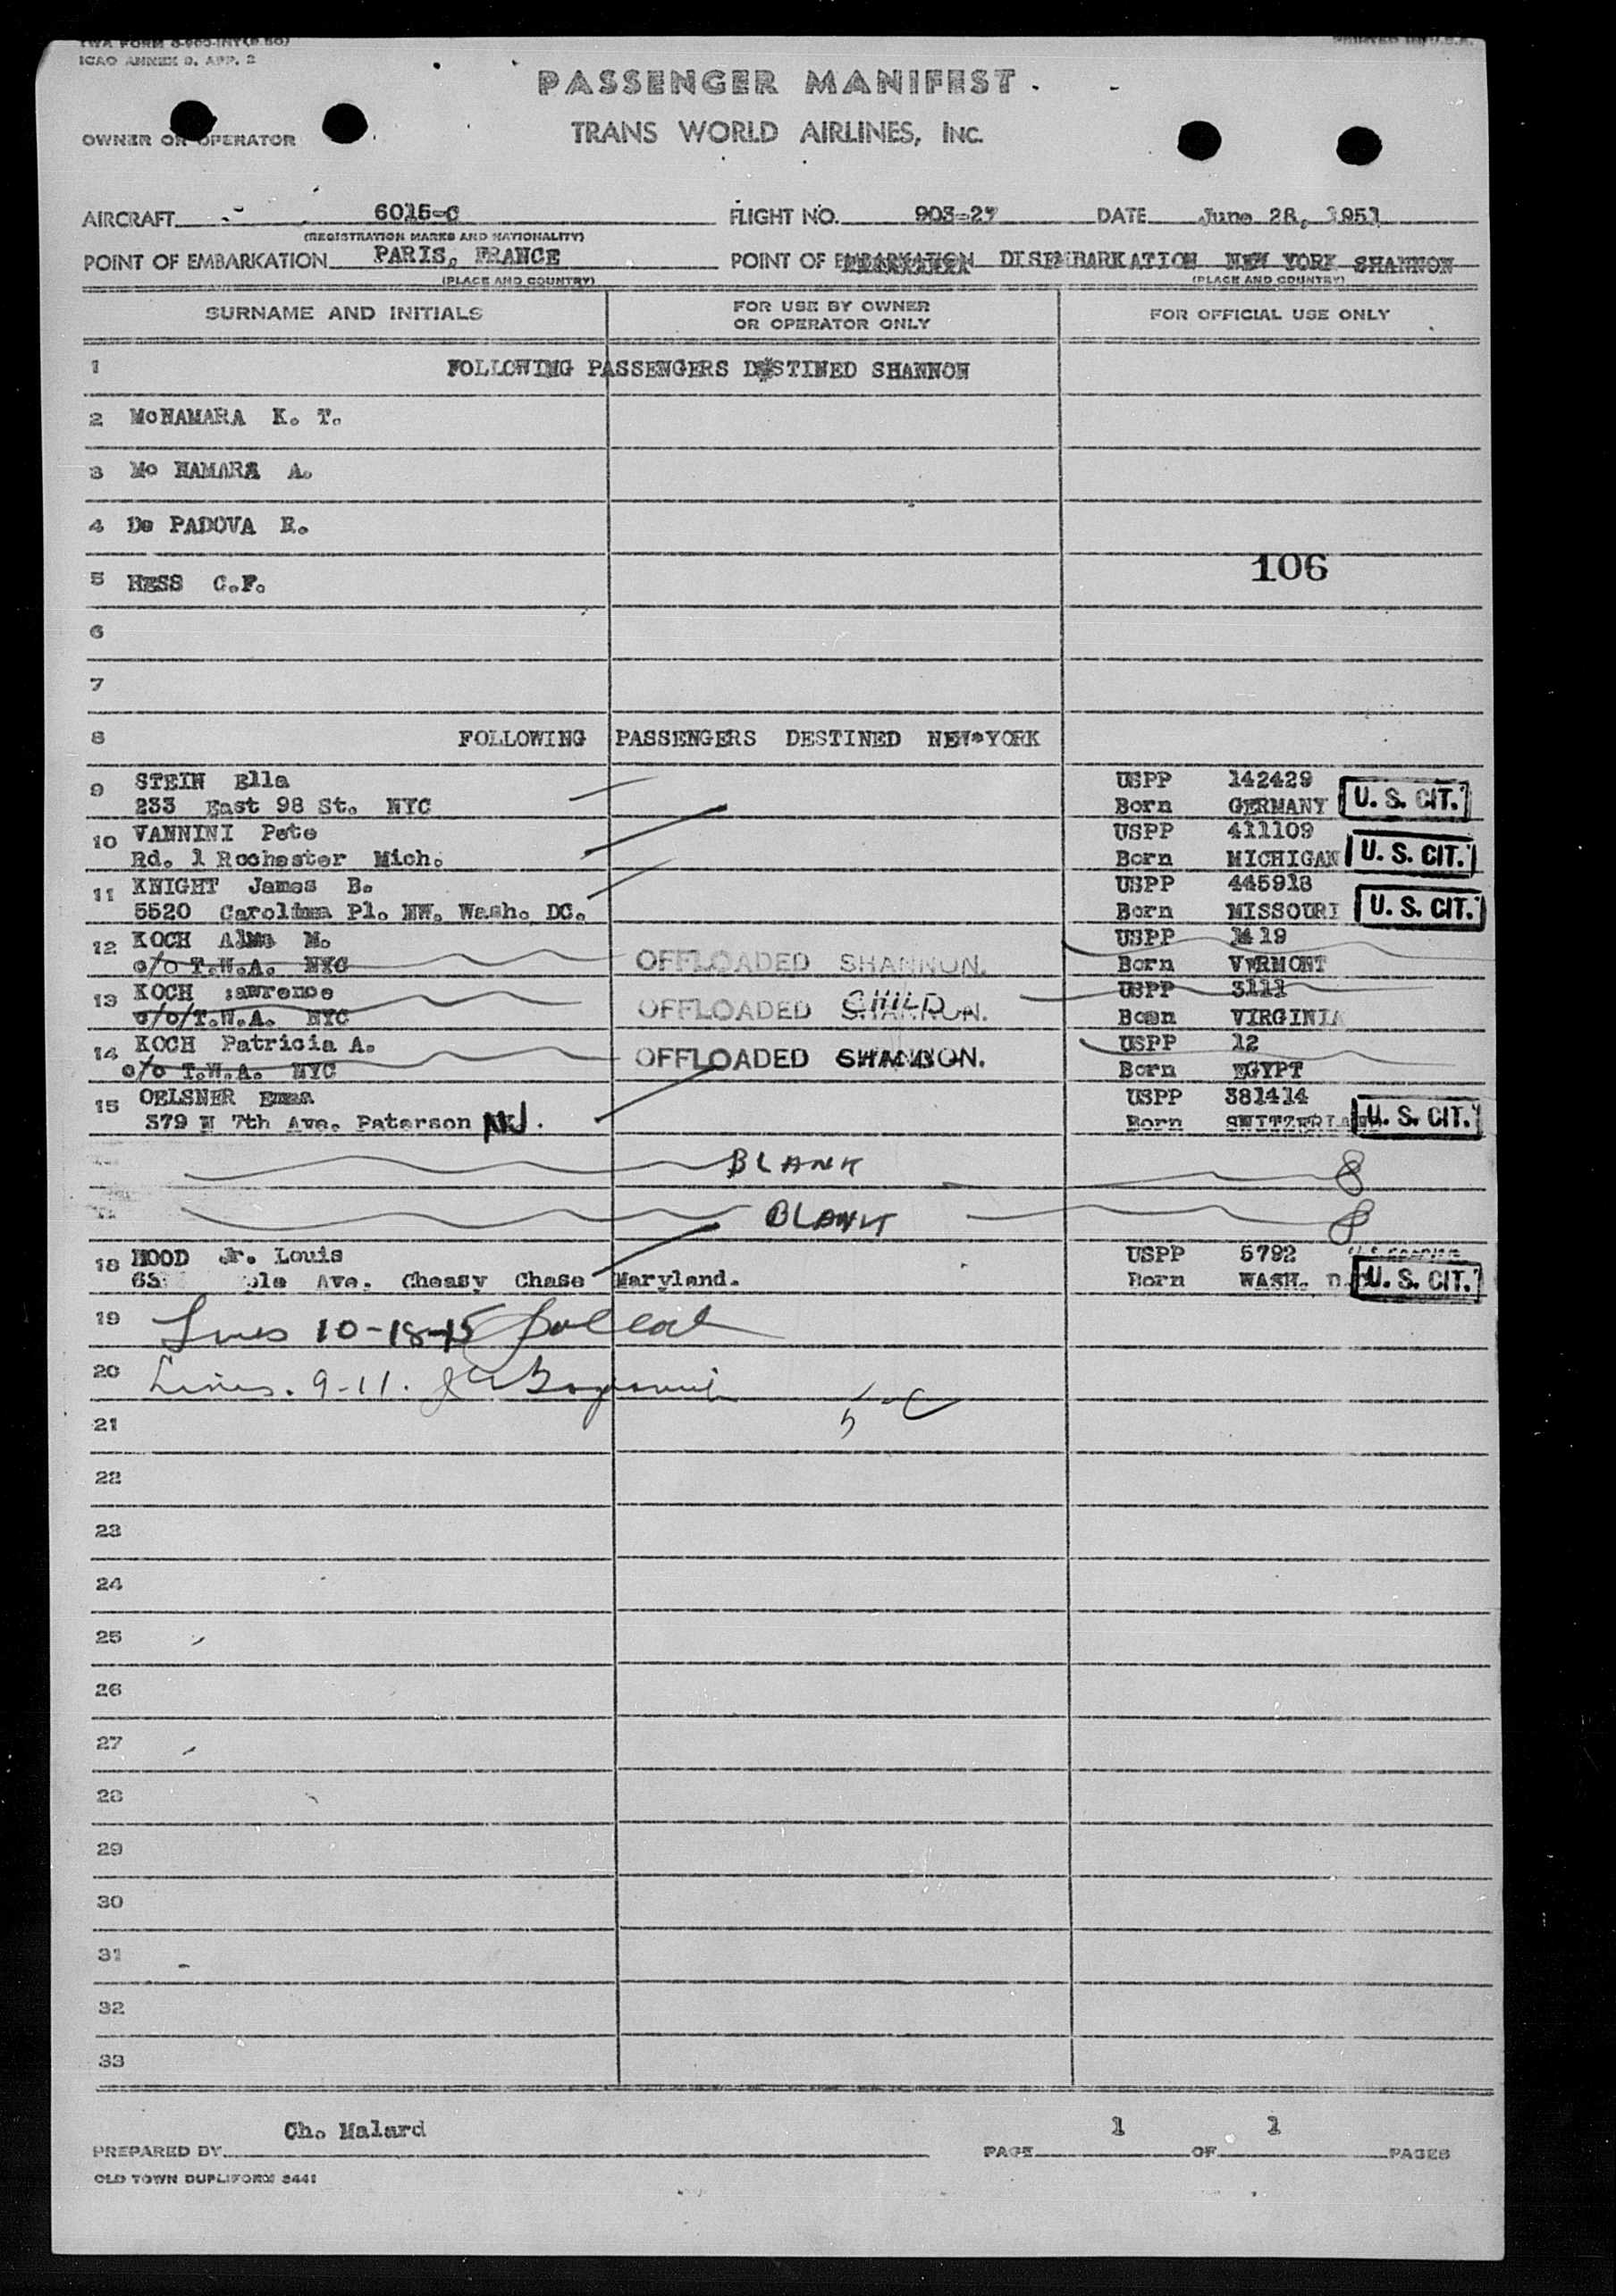 TWA FORM
ICAO ANNEX 9, APP. 2
PRINTED IN U.S.A.
PASSENGER MANIFEST
OWNER OR OPERATOR
TRANS WORLD AIRLINES, INC.
AIRCRAFT 6015-C FLIGHT NO. 903-27 DATE June 28, 1951
(REGISTRATION MARKS AND NATIONALITY)
POINT OF EMBARKATION PARIS, FRANCE POINT OF EMBARKATION DISEMBARKATION NEW YORK SHANNON
(PLACE AND COUNTRY) (PLACE AND COUNTRY)
SURNAME AND INITIALS FOR USE BY OWNER OR OPERATOR ONLY FOR OFFICIAL USE ONLY
1 FOLLOWING PASSENGERS DESTINED SHANNON
2 McNAMARA K. T.
3 Mc NAMARA A.
4 De PADOVA E.
106
5 HESS C.F.
6
7
8 FOLLOWING PASSENGERS DESTINED NEW*YORK
9 STEIN Ella USPP 142429
233 East 98 St. NYC Born GERMANY U. S. CIT.
10 VANNINI Pete USPP 411109
Rd. 1 Rochester Mich. Born MICHIGAN U. S. CIT.
11 KNIGHT James B. USPP 445918
5520 Carolina Pl. NW. Wash. DC. Born MISSOURI U. S. CIT.
12 KOCH Alma M. USPP 19
c/o T.W.A. NYC OFFLOADED SHANNON. Born VERMONT
13 KOCH awrence USPP 3111
c/o/T.W.A. NYC OFFLOADED SHANNON. CHILD Born VIRGINIA
14 KOCH Patricia A. USPP 12
c/o T.W.A. NYC OFFLOADED SHANNON. Born EGYPT
15 OELSNER Emma USPP 381414
379 N 7th Ave. Paterson NJ. Born SWITZERLAND U. S. CIT.
BLANK 8
BLANK 8
18 HOOD Jr. Louis USPP 5792
ple Ave. Cheasy Chase Maryland. Born WASH. D.C. U. S. CIT.
19 Lines 10-18-15
20 Lines. 9-11.
21
22
23
24
25
26
27
28
29
30
31
32
33
Ch. Malard 1 1
PREPARED BY PAGE OF PAGES
OLD TOWN DUPLIFORM 5441